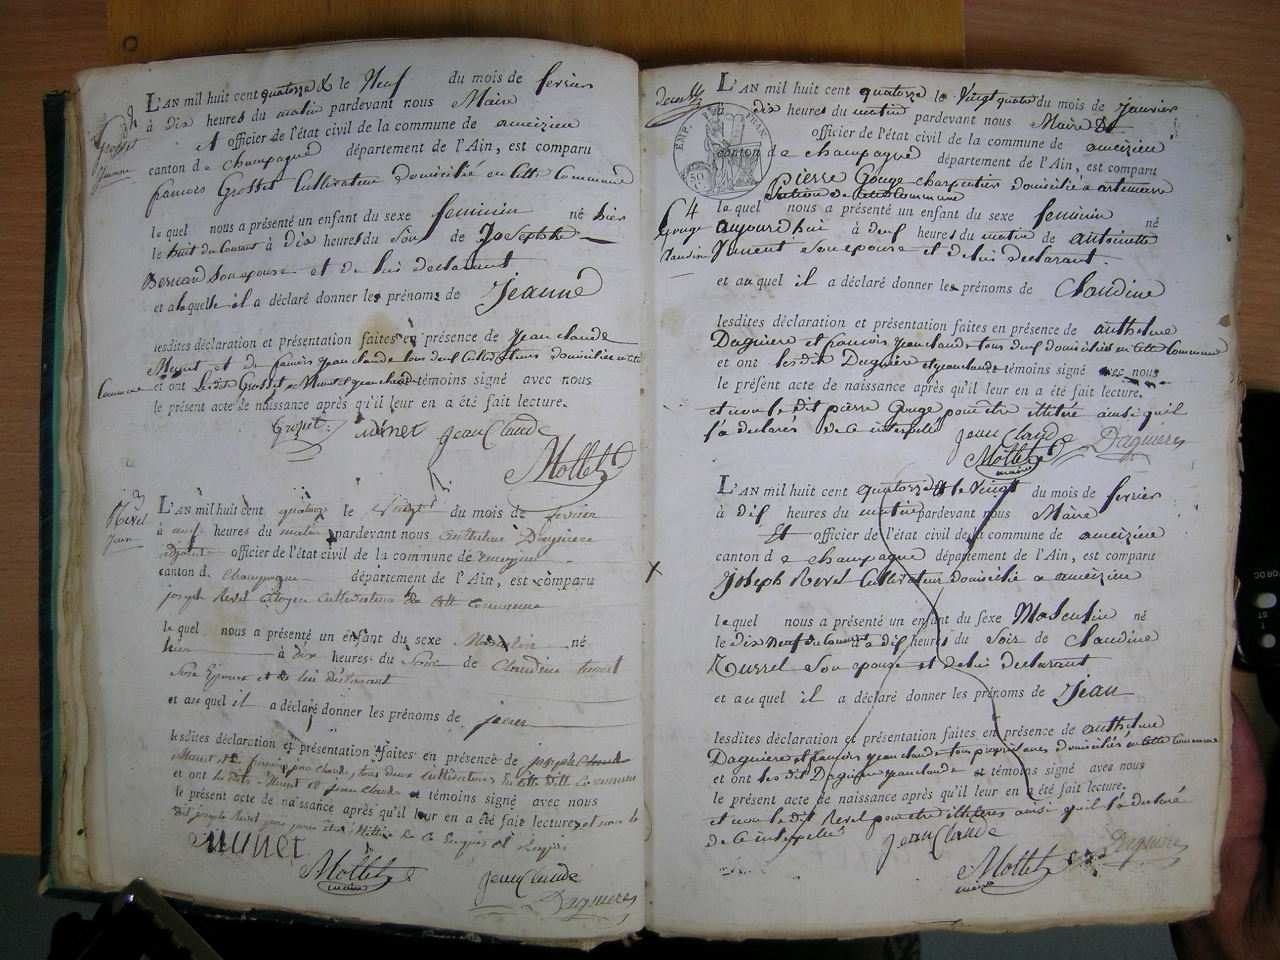 Grosset
Jeanne
L'AN mil huit cent quatorze & le Neuf du mois de fevrier
à dix heures du matin pardevant nous Maire
et officier de l'état civil de la commune de ameizieu
canton de champagne département de l'Ain, est comparu
francois Grosset Cultivateur domicilié en cette Commune
lequel nous a présenté un enfant du sexe feminin né hier
le huit du courant à dix heures du soir de Josephte
Bernard son epouse et de lui declarant
et a laquelle il a déclaré donner les prénoms de Jeanne
lesdites déclaration et présentation faites en présence de jean claude
Munet et de francois jean claude tous deux Cultivateurs domiciliés en cette
Commune et ont le dit Grosset Munet et jean claude témoins signé avec nous
le présent acte de naissance après qu'il leur en a été fait lecture.
Grosset munet jean Claude
Mollet
3
Revel
Jean
L'AN mil huit cent quatorze le vingt du mois de fevrier
à neuf heures du matin pardevant nous anthelme Daguiere
adjoint officier de l'état civil de la commune de ameizieu
canton de champagne département de l'Ain, est comparu
joseph Revel citoyen cultivateur de cette commune
lequel nous a présenté un enfant du sexe Masculin né
hier à dix heures du soir de Claudine
son Epouse et de lui declarant
et auquel il a déclaré donner les prénoms de jean
lesdites déclaration et présentation faites en présence de joseph
Munet et francois jean claude, tous deux cultivateurs en cette dite commune
et ont les dits Munet et jean Claude témoins signé avec nous
le présent acte de naissance après qu'il leur en a été fait lecture, et non le
dit joseph Revel pour être illitéré de ce enquis et requis
Munet
Mollet jean Claude
maire Daguiere
EMP. FRAN.
L'AN mil huit cent quatorze le vingt quatre du mois de janvier
à dix heures du matin pardevant nous Maire
officier de l'état civil de la commune de ameizieu
canton de champagne département de l'Ain, est comparu
pierre Gouge charpentier domicilié a artemarre
4
Gouge
Claudine
lequel nous a présenté un enfant du sexe feminin né
aujourd'hui à deux heures du matin de antoinette
Vincent son epouse et de lui declarant
et auquel il a déclaré donner les prénoms de Claudine
lesdites déclaration et présentation faites en présence de anthelme
Daguiere et francois jean claude tous deux domiciliés en cette Commune
et ont les dit Daguiere et jean claude témoins signé avec nous
le présent acte de naissance après qu'il leur en a été fait lecture.
et non le dit pierre Gouge pour etre illitéré ainsi qu'il
l'a declaré de ce interpellé jean Claude
Mollet Daguiere
maire
L'AN mil huit cent quatorze et le vingt du mois de fevrier
à dix heures du matin pardevant nous Maire
Et officier de l'état civil de la commune de ameizieu
canton de champagne département de l'Ain, est comparu
joseph Revel Cultivateur domicilié a ameizieu
lequel nous a présenté un enfant du sexe Masculin né
le dix neuf du courant à dix heures du soir de Claudine
son epouse et de lui declarant
et auquel il a déclaré donner les prénoms de jean
lesdites déclaration et présentation faites en présence de anthelme
Daguiere et francois jean claude tous proprietaires domiciliés en cette Commune
et ont les dit Daguiere jean claude et témoins signé avec nous
le présent acte de naissance après qu'il leur en a été fait lecture.
et non le dit Revel pour etre illitéré ainsi qu'il l'a declaré
de ce interpellé jean Claude
Mollet Daguiere
maire